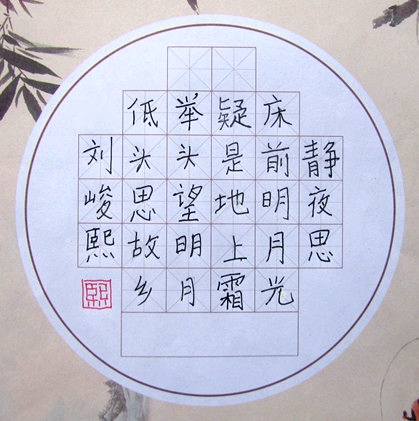 静夜思
床前明月光
疑是地上霜
举头望明月
低头思故乡
刘峻熙
熙